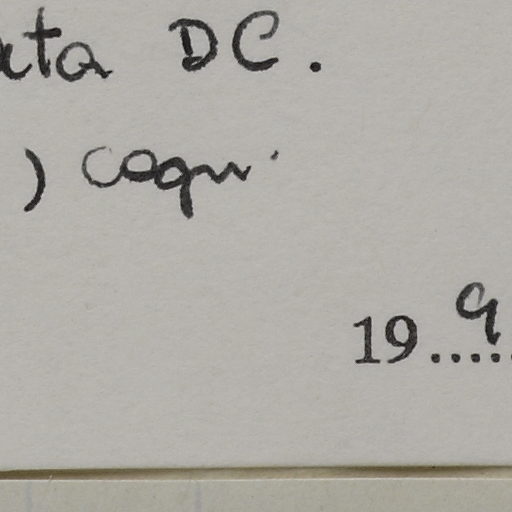 ata DC.
) Coqui
19.....9